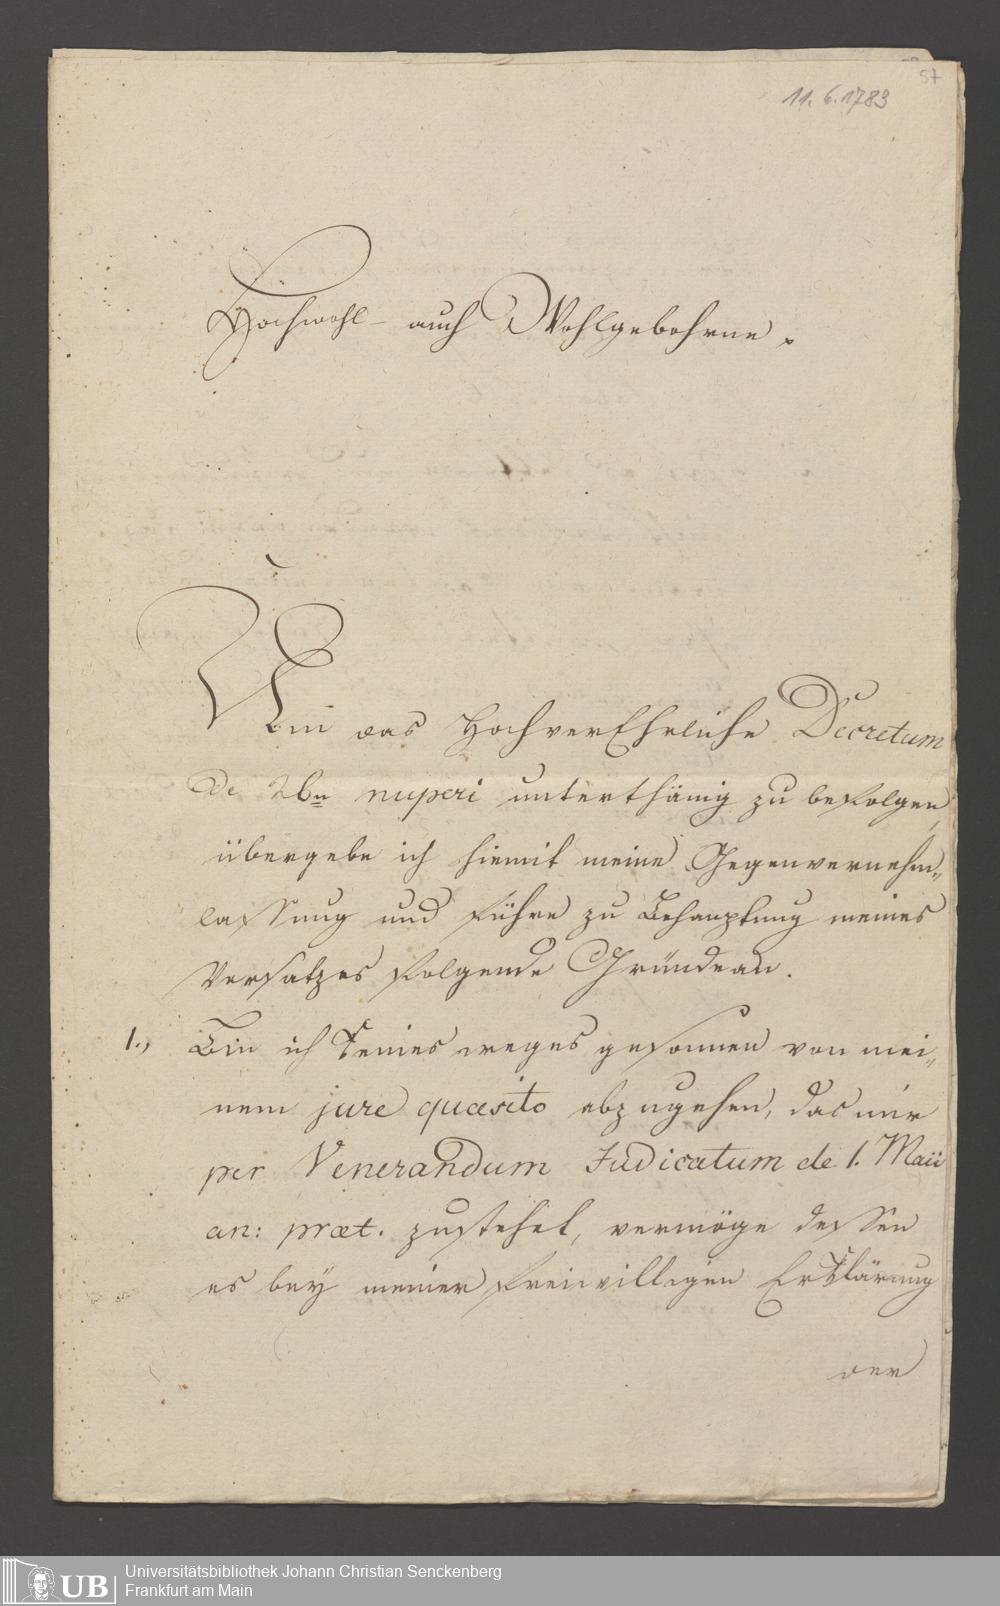 57
11. 6. 1783
Hochwohl- auch Wohlgebohrne.
Um das HochverEhrliche Decretum
de 26n nuperi unterthänig zu befolgen,
übergebe ich hiemit meine Gegenvernehm„
lassung und führe zu Behauptung meines
Versatzes folgende Gründe an.
1., Bin ich keines weges gesonnen von mei„
nem jure quæsito abzugehen, das mir
per Venerandum Judicatum de 1. Maii
an: præt. zustehet, vermöge dessen
es bey meiner freiwilligen Erklärung
der
UB
Universitätsbibliothek Johann Christian Senckenberg
Frankfurt am Main